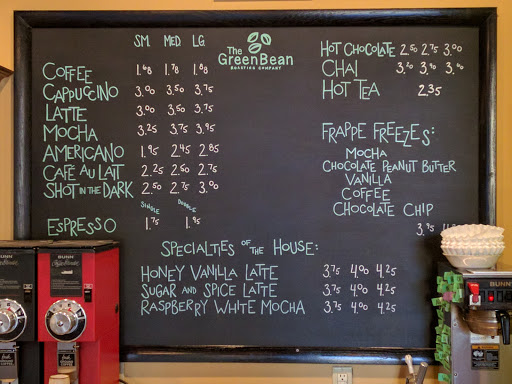 SM. MED LG.
COFFEE 1.68 1.78 1.88
CAPPUCCINO 3.00 3.50 3.75
LATTE 3.00 3.50 3.75
MOCHA 3.25 3.75 3.95
AMERICANO 1.95 2.45 2.85
CAFÉ AU LAIT 2.25 2.50 2.75
SHOT IN THE DARK 2.50 2.75 3.00
SINGLE DOUBLE
ESPRESSO 1.75 1.95
The
GreenBean
ROASTING COMPANY
HOT CHOCOLATE 2.50 2.75 3.00
CHAI 3.20 3.40
HOT TEA 2.35
FRAPPE FREEZES:
MOCHA
CHOCOLATE PEANUT BUTTER
VANILLA
COFFEE
CHOCOLATE CHIP
3.95
SPECIALTIES OF THE HOUSE:
HONEY VANILLA LATTE 3.75 4.00 4.25
SUGAR AND SPICE LATTE 3.75 4.00 4.25
RASPBERRY WHITE MOCHA 3.75 4.00 4.25
BUNN
BUNN
BUNN